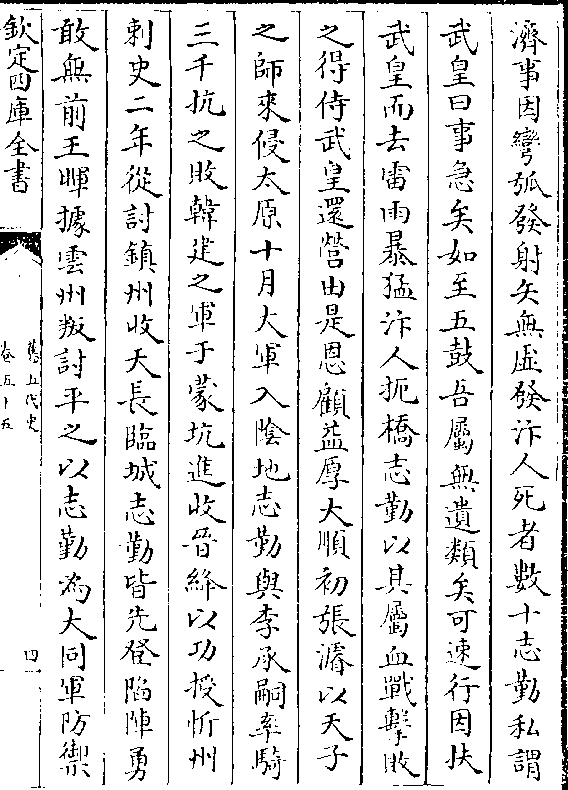 濟事因彎弧發射矢無虛發汴人死者數十志勤私謂
武皇曰事急矣如至五鼓吾屬無遺類矣可速行因扶
武皇而去雷雨暴猛汴人扼橋志勤以其屬血戰擊敗
之得侍武皇還營由是恩顧益厚大順初張濬以天子
之師來侵太原十月大軍入陰地志勤與李承嗣率騎
三千抗之敗韓建之軍于蒙坑進收晉絳以功授忻州
刺史二年從討鎮州收天長臨城志勤皆先登陷陣勇
敢無前王暉據雲州叛討平之以志勤為大同軍防禦
欽定四庫全書
舊五代史
卷五十五
四